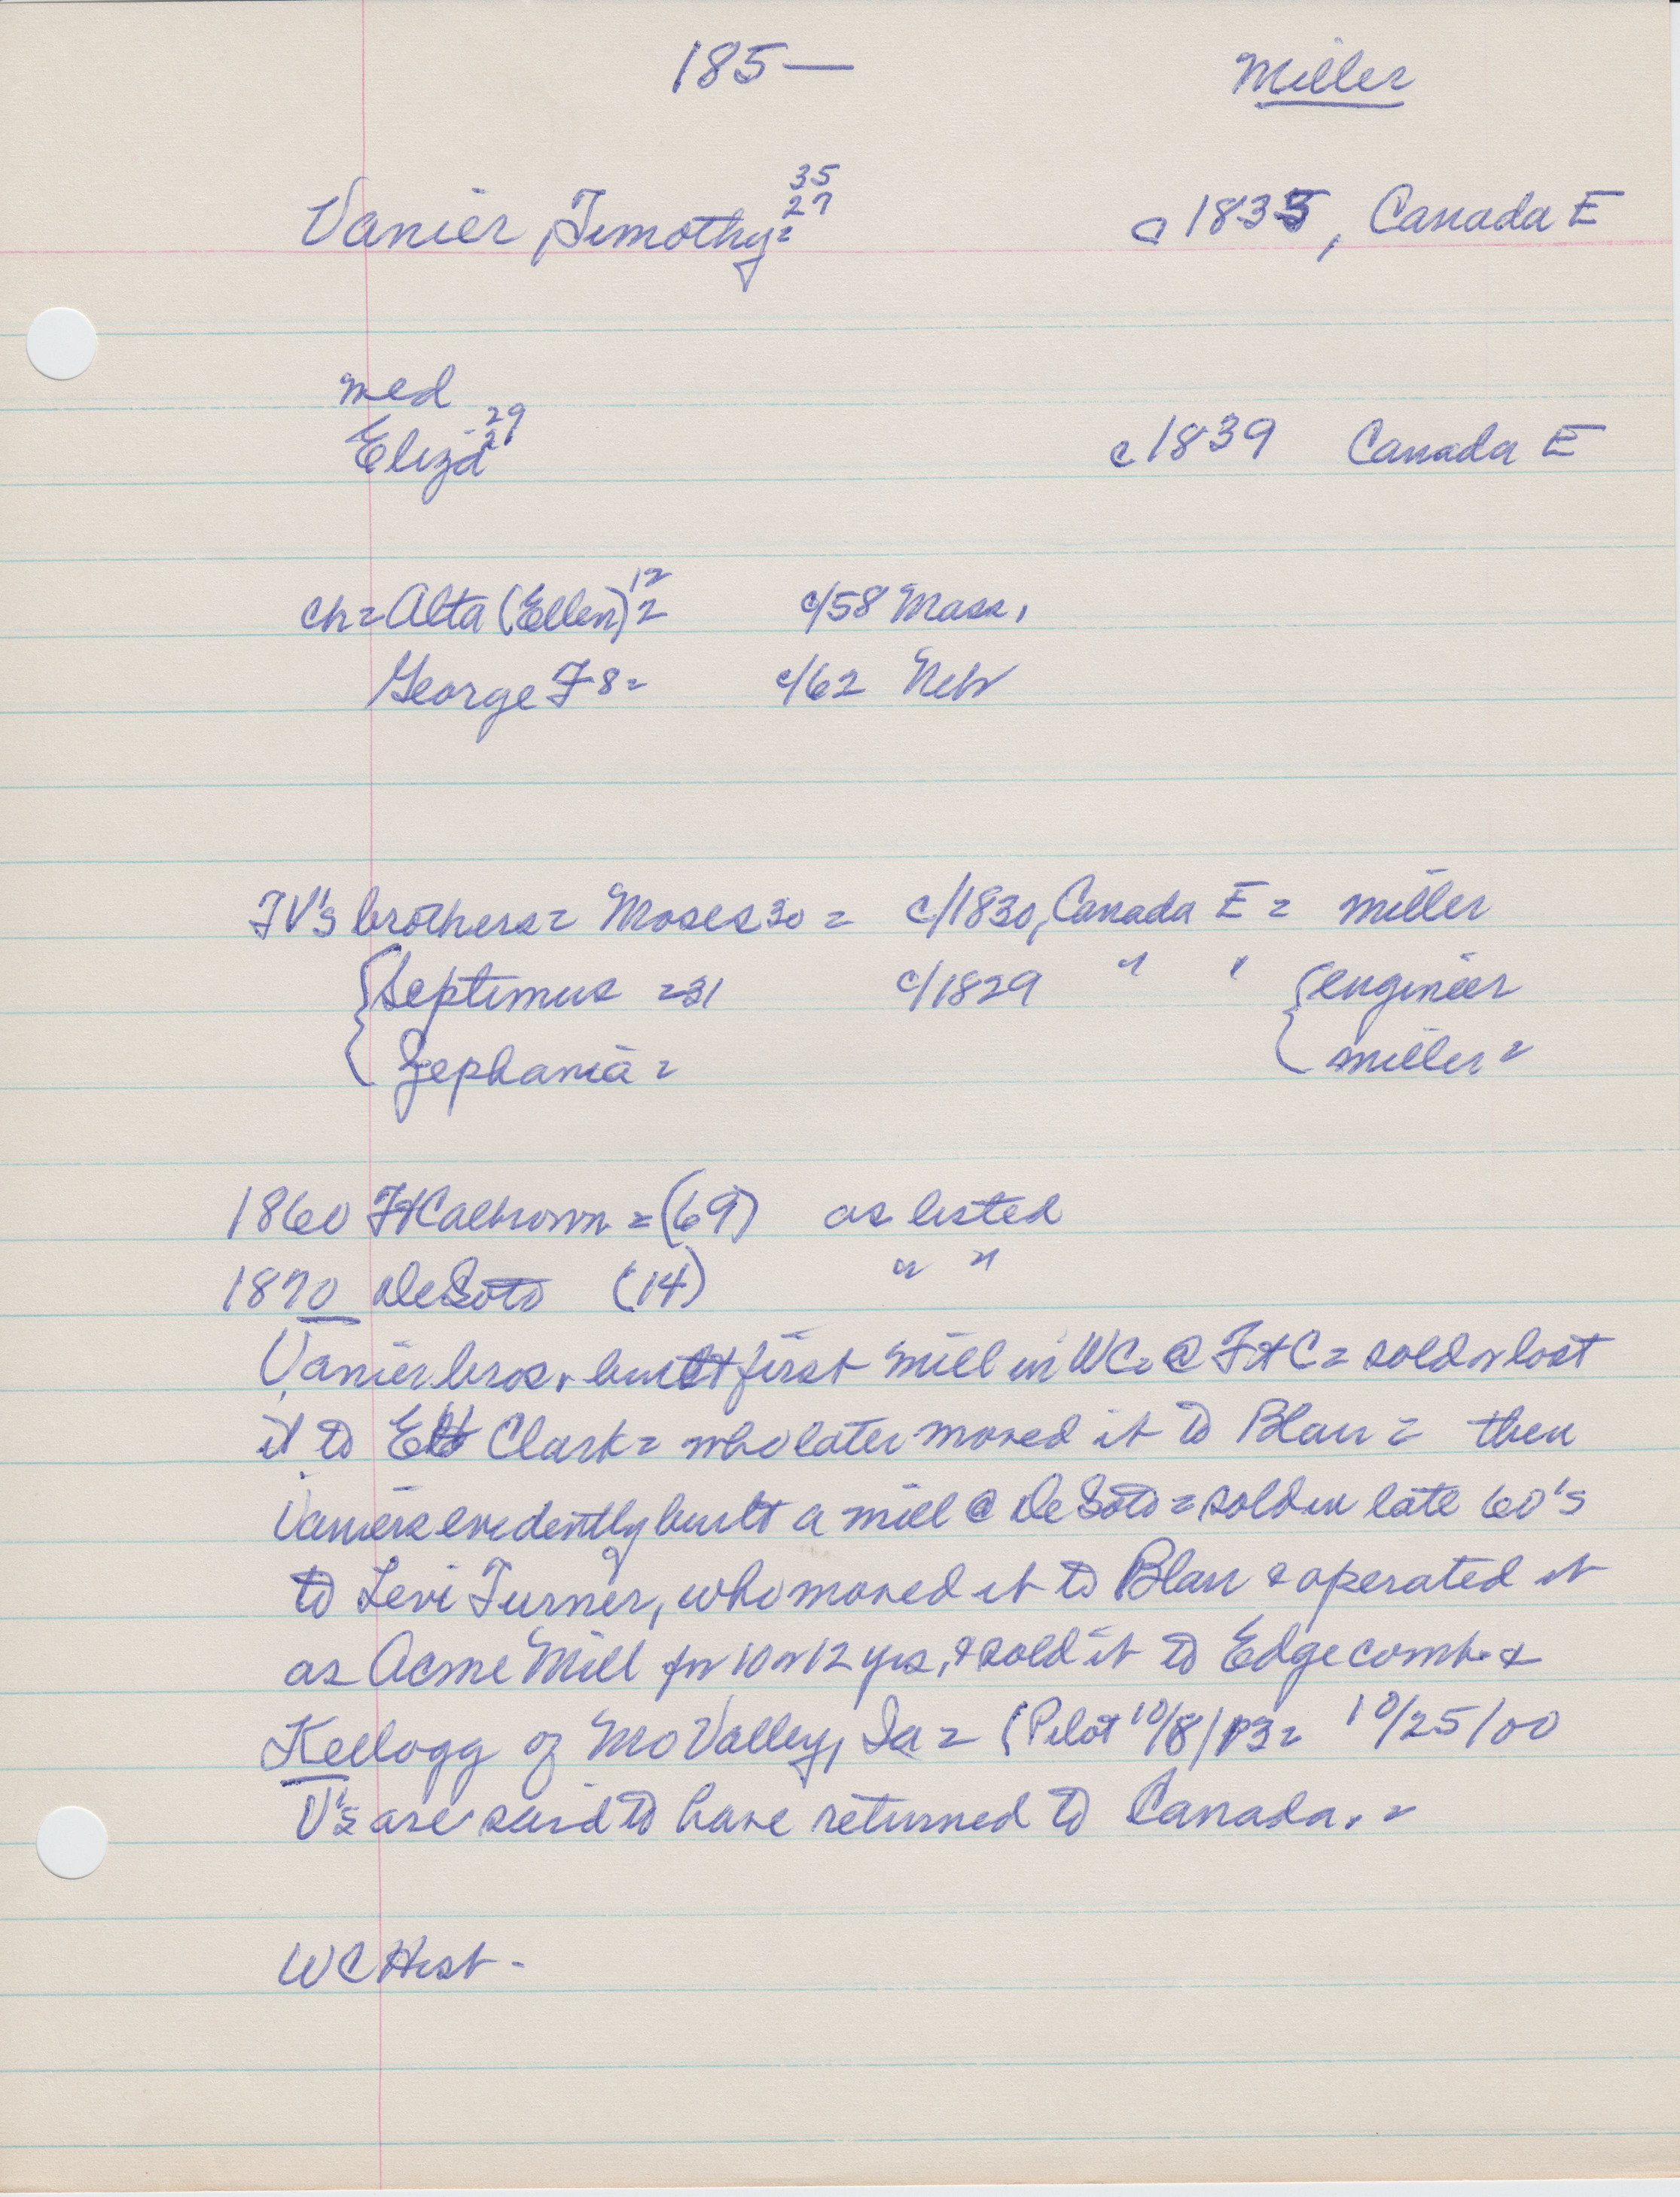 185— Miller
35
Vanier, Timothy = 27 c 1835, Canada E
med
29
Eliza 21 c 1839 Canada E
12
ch = Alta (Ellen) 2 c/58 Mass.
George F 8 = c/62 Neb
TV's brothers = Moses 30 = c/1830, Canada E = miller
{ Septimus = 31 c/1829 " " { engineer
{ Zephania = { miller =
1860 Ft Calhoun = (69) as listed
1870 DeSoto (14) " "
Vanier bros. built first mill in WCo @ Ft C = sold or lost
it to EH Clark = who later moved it to Blair = then
Vaniers evidently built a mill @ DeSoto = sold in late 60's
to Levi Turner, who moved it to Blair & operated it
as Acme Mill for 10 or 12 yrs, & sold it to Edgecomb &
Kellogg of Mo Valley, Ia = (Pilot 10/8/P3 = 10/25/00
V's are said to have returned to Canada. =
WC Hist -